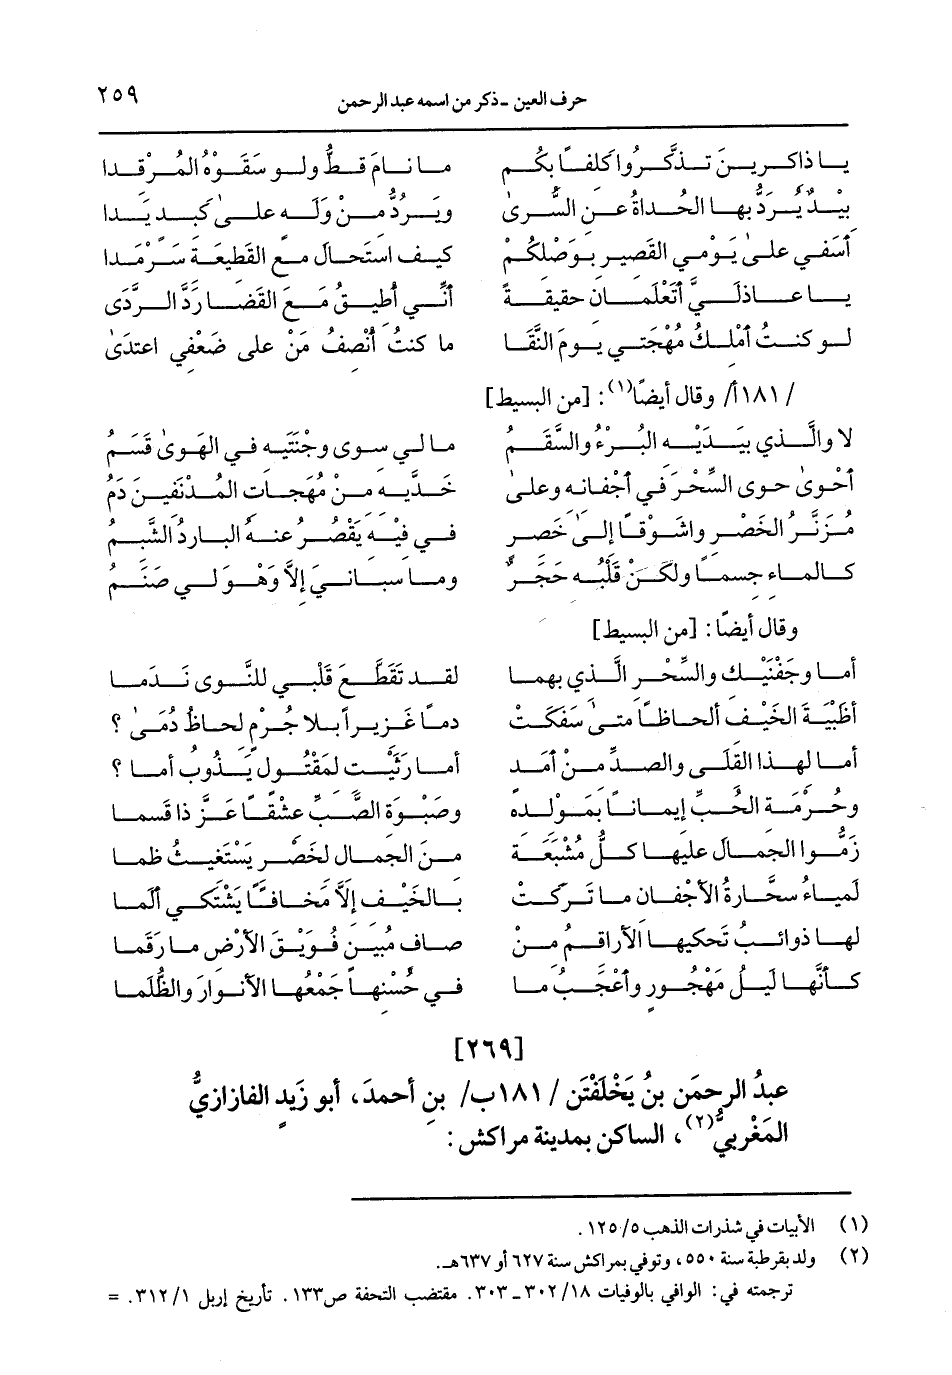 حرف العين - ذكر من اسمه عبد الرحمن ٢٥٩
يا ذاكرينَ تذكَّروا كلفاً بكم ما نامَ قطُّ ولو سقَوْهُ المُرْقدا
بيْدٌ يُرَدُّ بها الحداةُ عن السُّرىٰ ويَرُدُّ منْ وَلَه علىٰ كبدٍ يَدا
أسَفي علىٰ يَوْمي القصيرِ بوَصْلكُم كيف استَحالَ مع القَطيعَة سَرْمَدا
يا عاذلَيَّ أتَعْلَمانِ حقيقَةً أنّي أطيقُ مَعَ القَضا ردَّ الرَّدَى
لو كنتُ أمْلكُ مُهْجَتي يومَ النَّقا ما كنتُ أنْصفُ مَنْ على ضَعْفي اعتدَىٰ
/١٨١أ/ وقال أيضاً(١): [من البسيط]
لا والَّذي بيَدَيْه البُرْءُ والسَّقَمُ ما لي سوى وجْنَتَيه في الهَوىٰ قَسَمُ
أحْوىٰ حوى السِّحْرَ في أجْفانه وعلىٰ خدَّيه منْ مُهَجات المُدْنَفينَ دَمُ
مُزَنَّرُ الخَصْر واشَوْقاً إلىٰ خَصر في فيْه يَقْصُر عنهُ الباردُ الشَّبمُ
كالماء جسماً ولكنْ قَلْبُه حَجَرٌ وما سباني إلاَّ وَهْوَ لي صَنَمُ
وقال أيضاً: [من البسيط]
أما وجَفْنَيْك والسِّحْر الَّذي بهما لقد تَقَطَّعَ قَلْبي للنَّوى نَدَما
أظَبْيَةَ الخَيْف ألحاظاً متىٰ سَفَكتْ دماً غَزيراً بلا جُرْم لحاظُ دُمَىٰ ؟
أما لهذا القلَى والصدِّ منْ أمَد أما رَثَيْت لمَقْتُول يَذُوبُ أما ؟
وحُرْمَة الحُبِّ إيماناً بمَوْلده وصَبْوَة الصَّبِّ عشْقاً عَزَّ ذا قَسما
زَمُّوا الجمالَ عليها كلُّ مُشْبَعَة منَ الجمال لخَصْر يَسْتَغيثُ ظما
لَمياءُ سحَّارةُ الأجْفان ما تَركَتْ بالخَيْف إلاَّ مُحَافاً يَشْتَكي ألما
لها ذوائبُ تَحكيها الأراقمُ منْ صاف مُبين فُوَيْقَ الأرْض ما رَقَما
كأنَّها ليلُ مَهْجُور وأعْجَبُ ما في حُسْنهاً جَمْعُها الأنوارَ والظُّلَما
[٢٦٩]
عبدُ الرحمَن بنُ يَخْلَفْتَن /١٨١ب/ بن أحمدَ، أبو زَيد الفازازيُّ
المَغْربيُّ(٢)، الساكن بمدينة مراكش:
(١) الأبيات في شذرات الذهب ١٢٥/٥.
(٢) ولد بقرطبة سنة ٥٥٠، وتوفي بمراكش سنة ٦٢٧ أو ٦٣٧هـ.
ترجمته في: الوافي بالوفيات ٣٠٢/١٨ - ٣٠٣. مقتضب التحفة ص١٣٣. تأريخ إربل ٣١٢/١. =